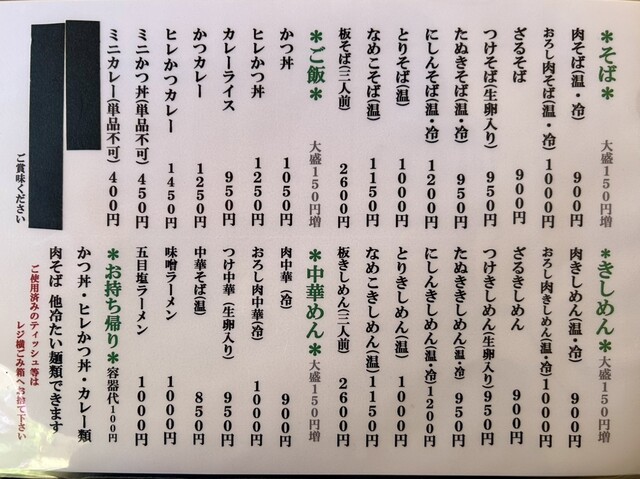 ＊そば＊ 大盛150円増
肉そば(温・冷) 900円
おろし肉そば(温・冷) 1000円
ざるそば 900円
つけそば(生卵入り) 950円
たぬきそば(温・冷) 950円
にしんそば(温・冷) 1200円
とりそば(温) 1000円
なめこそば(温) 1150円
板そば(三人前) 2600円
＊ご飯＊ 大盛150円増
かつ丼 1050円
ヒレかつ丼 1250円
カレーライス 950円
かつカレー 1250円
ヒレかつカレー 1450円
ミニかつ丼(単品不可) 450円
ミニカレー(単品不可) 400円
ご賞味ください
＊きしめん＊ 大盛150円増
肉きしめん(温・冷) 900円
おろし肉きしめん(温・冷) 1000円
ざるきしめん 900円
つけきしめん(生卵入り) 950円
たぬききしめん(温・冷) 950円
にしんきしめん(温・冷) 1200円
とりきしめん(温) 1000円
なめこきしめん(温) 1150円
板きしめん(三人前) 2600円
＊中華めん＊ 大盛150円増
肉中華(冷) 900円
おろし肉中華(冷) 1000円
つけ中華(生卵入り) 950円
中華そば(温) 850円
味噌ラーメン 1000円
五目塩ラーメン 1000円
＊お持ち帰り＊ 容器代100円
かつ丼・ヒレかつ丼・カレー類
肉そば 他冷たい麺類できます
ご使用済みのティッシュ等は
レジ横ごみ箱へお捨て下さい